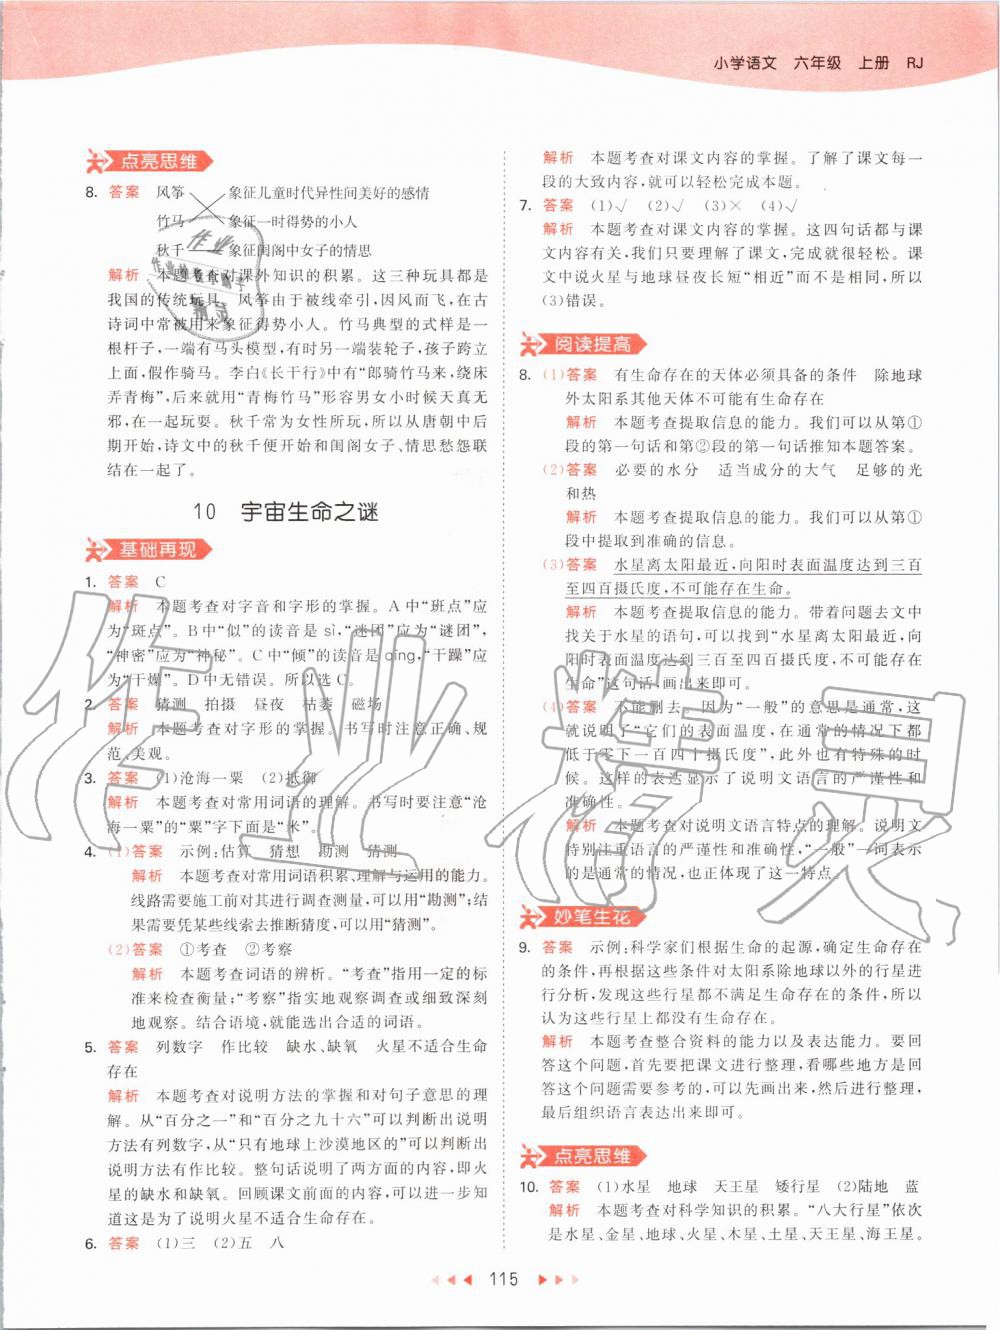 小学语文 六年级 上册 RJ
点亮思维
8. 答案 风筝 象征儿童时代异性间美好的感情
竹马 象征一时得势的小人
秋千 象征闺阁中女子的情思
解析 本题考查对课外知识的积累。这三种玩具都是
我国的传统玩具。风筝由于被线牵引,因风而飞,在古
诗词中常被用来象征得势小人。竹马典型的式样是一
根杆子,一端有马头模型,有时另一端装轮子,孩子跨立
上面,假作骑马。李白《长干行》中有“郎骑竹马来,绕床
弄青梅”,后来就用“青梅竹马”形容男女小时候天真无
邪,在一起玩耍。秋千常为女性所玩,所以从唐朝中后
期开始,诗文中的秋千便开始和闺阁女子、情思愁怨联
结在一起了。
10 宇宙生命之谜
基础再现
1. 答案 C
解析 本题考查对字音和字形的掌握。A中“班点”应
为“斑点”。B中“似”的读音是 sì,“迷团”应为“谜团”,
“神密”应为“神秘”。C中“倾”的读音是 qīng,“干躁”应
为“干燥”。D中无错误。所以选C。
2. 答案 猜测 拍摄 昼夜 枯萎 磁场
解析 本题考查对字形的掌握。书写时注意正确、规
范、美观。
3. 答案 (1)沧海一粟 (2)抵御
解析 本题考查对常用词语的理解。书写时要注意“沧
海一粟”的“粟”字下面是“米”。
4. (1)答案 示例:估算 猜想 勘测 猜测
解析 本题考查对常用词语积累、理解与运用的能力。
线路需要施工前对其进行调查测量,可以用“勘测”;结
果需要凭某些线索去推断猜度,可以用“猜测”。
(2)答案 ①考查 ②考察
解析 本题考查词语的辨析。“考查”指用一定的标
准来检查衡量;“考察”指实地观察调查或细致深刻
地观察。结合语境,就能选出合适的词语。
5. 答案 列数字 作比较 缺水、缺氧 火星不适合生命
存在
解析 本题考查对说明方法的掌握和对句子意思的理
解。从“百分之一”和“百分之九十六”可以判断出说明
方法有列数字,从“只有地球上沙漠地区的”可以判断出
说明方法有作比较。整句话说了两方面的内容,即火
星的缺水和缺氧。回顾课文前面的内容,可以进一步知
道这是为了说明火星不适合生命存在。
6. 答案 (1)三 (2)五 八
解析 本题考查对课文内容的掌握。了解了课文每一
段的大致内容,就可以轻松完成本题。
7. 答案 (1)√ (2)√ (3)× (4)√
解析 本题考查对课文内容的掌握。这四句话都与课
文内容有关,我们只要理解了课文,完成就很轻松。课
文中说火星与地球昼夜长短“相近”而不是相同,所以
(3)错误。
阅读提高
8. (1)答案 有生命存在的天体必须具备的条件 除地球
外太阳系其他天体不可能有生命存在
解析 本题考查提取信息的能力。我们可以从第①
段的第一句话和第②段的第一句话推知本题答案。
(2)答案 必要的水分 适当成分的大气 足够的光
和热
解析 本题考查提取信息的能力。我们可以从第①
段中提取到准确的信息。
(3)答案 水星离太阳最近,向阳时表面温度达到三百
至四百摄氏度,不可能存在生命。
解析 本题考查提取信息的能力。带着问题去文中
找关于水星的语句,可以找到“水星离太阳最近,向
阳时表面温度达到三百至四百摄氏度,不可能存在
生命”这句话,画出来即可。
(4)答案 不能删去。因为“一般”的意思是通常,这
就说明了“它们的表面温度,在通常的情况下都
低于零下一百四十摄氏度”,此外也有特殊的时
候。这样的表达显示了说明文语言的严谨性和
准确性。
解析 本题考查对说明文语言特点的理解。说明文
特别注重语言的严谨性和准确性,“一般”一词表示
的是通常的情况,也正体现了这一特点。
妙笔生花
9. 答案 示例:科学家们根据生命的起源,确定生命存在
的条件,再根据这些条件对太阳系除地球以外的行星进
行分析,发现这些行星都不满足生命存在的条件,所以
认为这些行星上都没有生命存在。
解析 本题考查整合资料的能力以及表达能力。要回
答这个问题,首先要把课文进行整理,看哪些地方是回
答这个问题需要参考的,可以先画出来,然后进行整理,
最后组织语言表达出来即可。
点亮思维
10. 答案 (1)水星 地球 天王星 矮行星 (2)陆地 蓝
解析 本题考查对科学知识的积累。“八大行星”依次
是水星、金星、地球、火星、木星、土星、天王星、海王星。
115
作业精灵